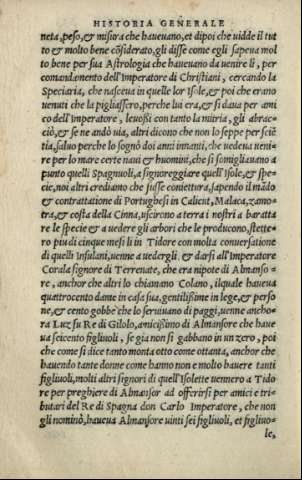 HISTORIA GENERALE
neta, peso, & misura che haueuano, et dipoi che uidde il tut
to & molto bene cõsiderato, gli disse come egli sapeua mol
to bene per sua Astrologia che haueuano da uenire lì, per
comandamento dell'Imperatore di Christiani, cercando la
Speciaria, che nasceua in quelle lor Isole, & poi che erano
uenuti che la pigliassero, perche lui era, & si daua per ami
co dell'Imperatore, leuossi con tanto la mitria, gli abrac-
ciò, & se ne andò uia, altri dicono che non lo seppe per sciẽ
tia, saluo perche lo sognò doi anni innanti, che uedeua ueni-
re per lo mare certe naui & huomini, che si somigliauano a
punto quelli Spagnuoli, a signoreggiare quell'Isole, & spe-
cie, noi altri crediamo che fusse coniettura, sapendo il mãdo
& contrattatione di Portughesi in Calicut, Malaca, zamo-
tra, & costa della Cinna, uscirono a terra i nostri a baratta
re le specie & a uedere gli arbori che le producono, stette-
ro piu di cinque mesi lì in Tidore con molta conuersatione
di quelli Insulani, uenne a uedergli & darsi all'Imperatore
Corala signore di Terrenate, che era nipote di Almanso-
re, anchor che altri lo chianano Colano, ilquale haueua
quattrocento dame in casa sua, gentilißime in lege, & perso
ne, & cento gobbe che lo seruiuano di paggi, uenne ancho-
ra Luz fu Re di Gilolo, amicißimo di Almansore che haue
ua seicento figliuoli, se già non si gabbano in un zero, poi
che come si dice tanto monta otto come ottanta, anchor che
hauendo tante donne come hanno non e molto hauere tanti
figliuoli, molti altri signori di quell'Isolette uennero a Tido
re per preghiere di Almansor ad offerirsi per amici e tri-
butari del Re di Spagna don Carlo Imperatore, che non
gli nominò, haueua Almansore uinti sei figliuoli, et figliuo-
le,